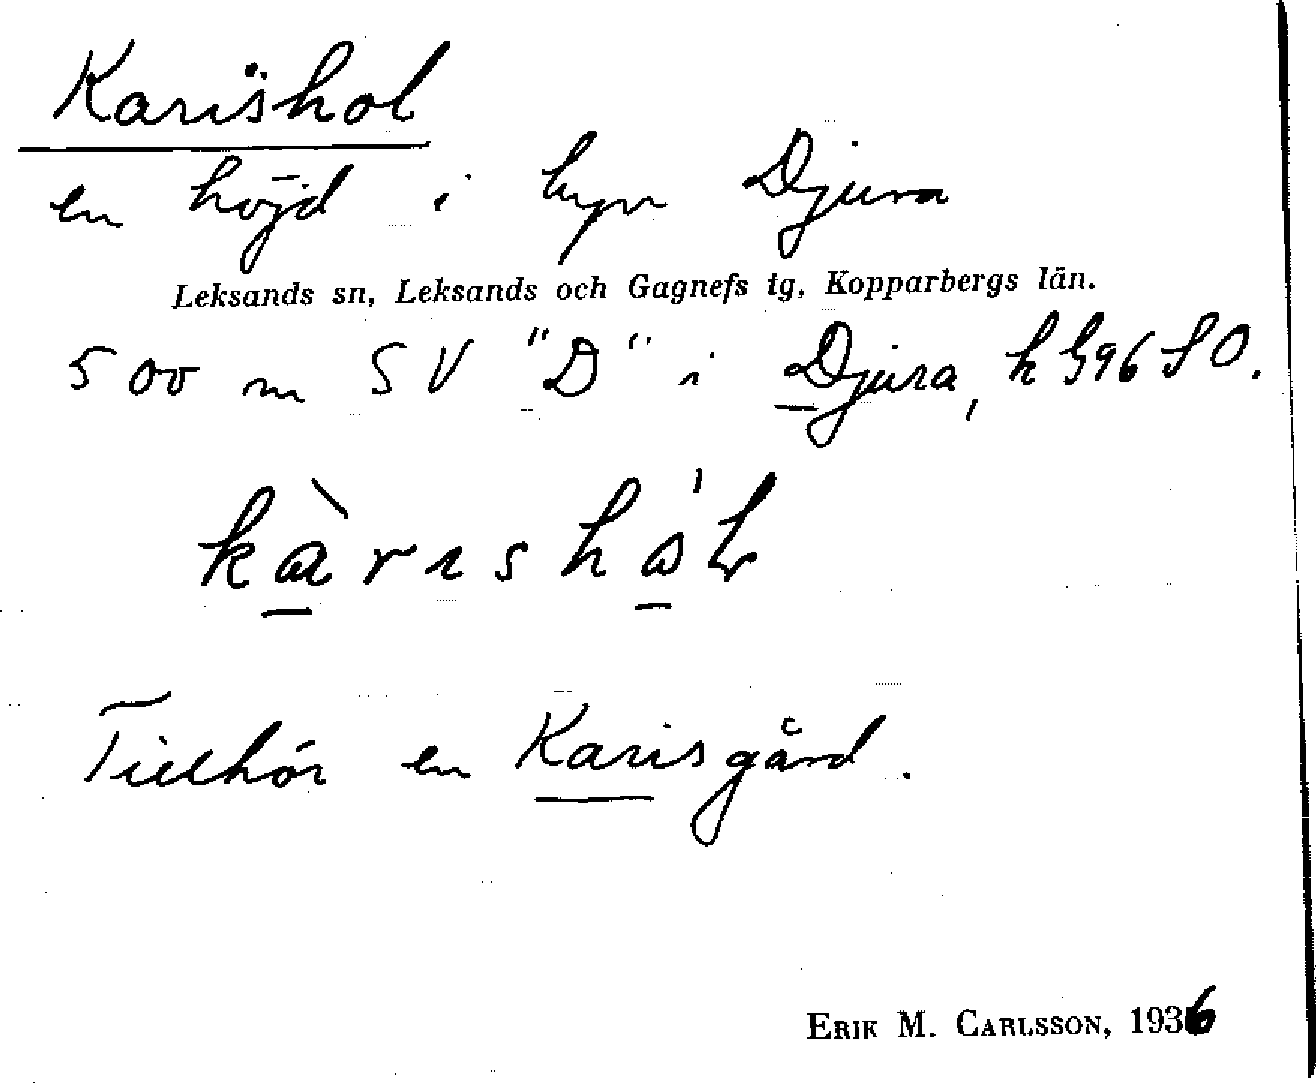 Karishol
en höjd i byn Djura
Leksands sn, Leksands och Gagnefs tg, Kopparbergs län.
500 m SV "D" i Djura, k G96 SO.
Tillhör en Karisgård.
ERIK M. CARLSSON, 1936